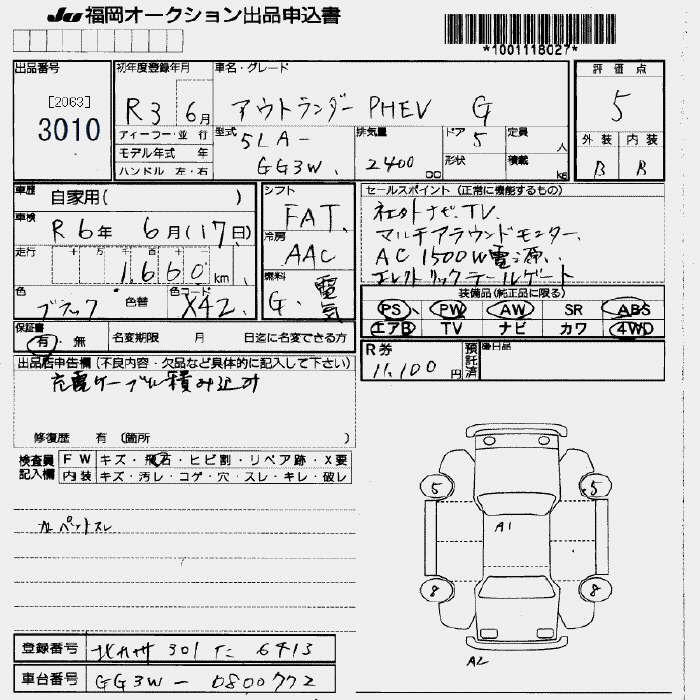 JU 福岡オークション出品申込書
*1001118027*
出品番号
[2063]
3010
初年度登録年月
R3 6月
ティーラー・並 行
モデル年式 年
ハンドル 左・右
車名・グレード
アウトランダー PHEV G
型式 5LA-
GG3W
排気量 2400 cc
ドア 5
形状
定員 人
積載 kg
評価点
5
外装 内装
B B
車歴 自家用( )
車検 R6年 6月(17日)
走行 十 万 千 百 十
1,660 km
色 ブラック 色替 色コード X42
シフト FAT
冷房 AAC
燃料 G、電気
セールスポイント (正常に機能するもの)
社外ナビ.TV.
マルチアラウンドモニター、
AC 1500W電源、
エレクトリックテールゲート
装備品(純正品に限る)
PS PW AW SR ABS
エアB TV ナビ カワ 4WD
保証書 有・無
名変期限 月 日迄に名変できる方
R券 11,100円
預託済
後日品
出品店申告欄(不良内容・欠品など具体的に記入して下さい)
充電ケーブル積み込み
修復歴 有 (箇所 )
検査員記入欄
FW キズ・飛石・ヒビ割・リペア跡・X要
内装 キズ・汚レ・コゲ・穴・スレ・キレ・破レ
カーペットスレ
5 5
A1
8 8
A2
登録番号 北九州 301 た 6413
車台番号 GG3W-0800772